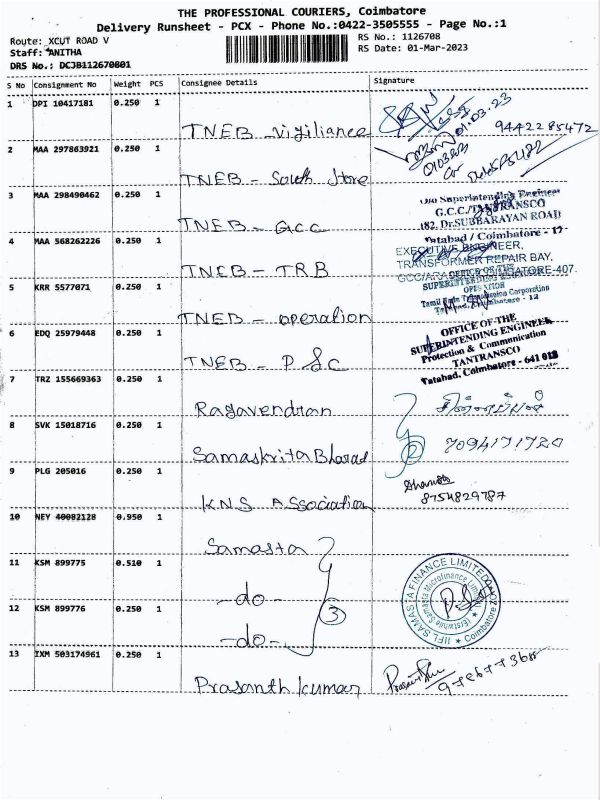 THE PROFESSIONAL COURIERS, Coimbatore
Delivery Runsheet - PCX - Phone No.:0422-3505555 - Page No.:1
Route: XCUT ROAD V
RS No.: 1126708
Staff: ANITHA
RS Date: 01-Mar-2023
DRS No.: DCJB112670801
S No Consignment No Weight PCS Consignee Details Signature
1 DPI 10417181 0.250 1
TNEB - Vigiliance
01.03.23
9442285472
2 MAA 297863921 0.250 1
TNEB - South Store
3 MAA 298490462 0.250 1
O/o Superintending Engineer
G.C.C./TANTRANSCO
182, Dr.SUBBARAYAN ROAD
Tatabad / Coimbatore - 12
TNEB - G.C.C
4 MAA 568262226 0.250 1
EXECUTIVE ENGINEER,
TRANSFORMER REPAIR BAY,
TNEB - TRB
5 KRR 5577071 0.250 1
OFFICE OF THE
SUPERINTENDING ENGINEER
OPERATION
TNEB - operation
6 EDQ 25979448 0.250 1
OFFICE OF THE
SUPERINTENDING ENGINEER
Protection & Communication
TANTRANSCO
Tatabad, Coimbatore - 641 012
TNEB - P & C
7 TRZ 155669363 0.250 1
Ragavendran
8 SVK 15018716 0.250 1
2
7094171720
Samaskrita Bharat
9 PLG 205016 0.250 1
8754829787
KNS Association
10 NEY 40082128 0.950 1
Samasta
11 KSM 899775 0.510 1
-do-
3
IIFL SAMASTA FINANCE LIMITED
(Erstwhile Samasta Microfinance Limited)
Coimbatore
12 KSM 899776 0.250 1
-do-
13 IXM 503174961 0.250 1
Prasanth kumar